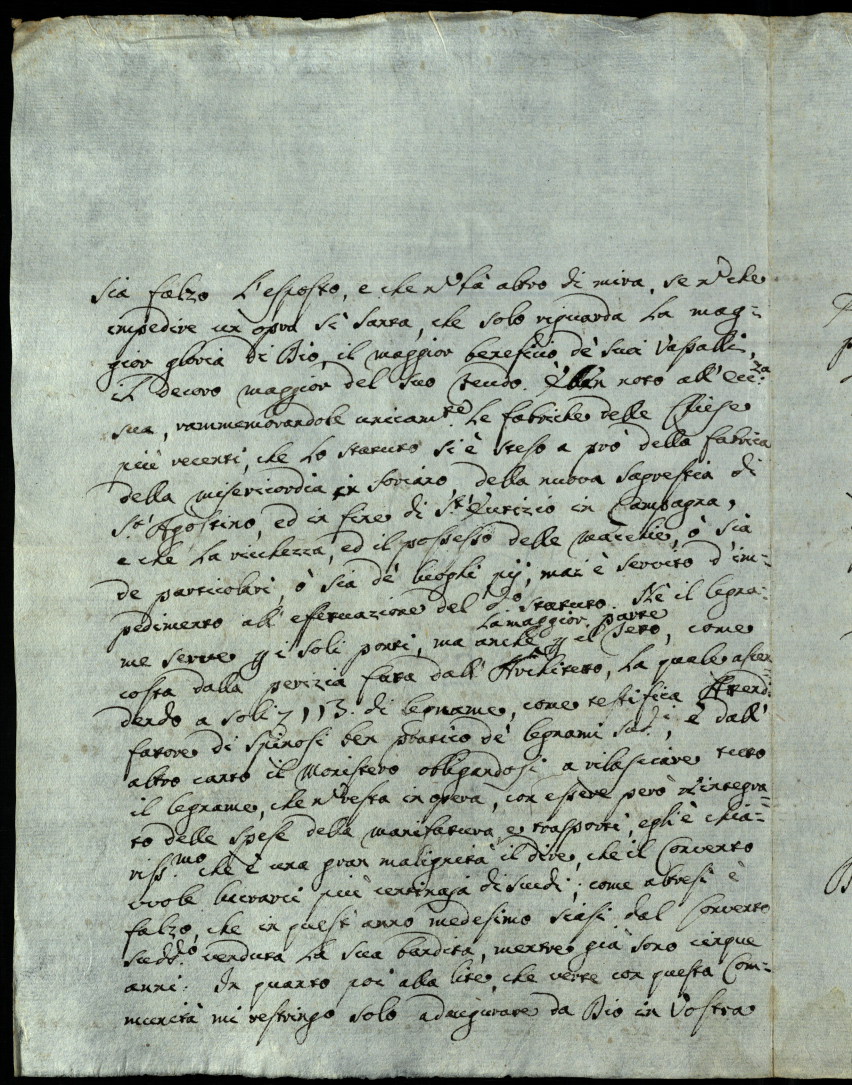 sia falzo l'esposto, e che nõ hà altro di mira, se nõ che
impedire un'opra si santa, che solo riguarda la mag=
gior gloria di Dio, il maggior beneficio de suoi Vassalli,
il decoro maggior del suo feudo. È ben noto all'ecc:za
sua, rammemorandole unicam:te le fabriche delle Chiese
più recenti, che lo statuto si è steso a prò della fabrica
della misericordia in Soriano, della nuova sagrestia di
S:t' Agostino, ed in fine di S:t' Eutizio in Campagna,
e che la ricchezza, ed il possesso delle macchie, ò sia
de particolari, ò sia de luoghi pij, mai è servito d'im=
pedimento all'effettuazione del d:o statuto. Nè il legna=
me serve p i soli ponti, ma anche p la maggior parte il Teto, come
costa dalla perizia fata dall'Architeto, la quale ascen
dendo a soli 113. di legname, come testifica
fatore di Spinosi ben pratico de legnami sud:i, e dall'
altro canto il Monistero obligandosi a rilasciare tutto
il legname, che nõ resta in opera, con essere però r'integra=
to delle spese della manifatura, e trasporti, egli è chia=
riss:mo che è una gran malignità il dire, che il Convento
vuole lucrarci più centinaja di scudi; come altresì è
falzo, che in quest'anno medesimo siasi dal Convento
sudd:o venduta la sua bandita, mentre già sono cinque
anni. In quanto poi alla lite, che verte con questa Com=
munità mi restringo solo ad augurare da Dio in Vostra